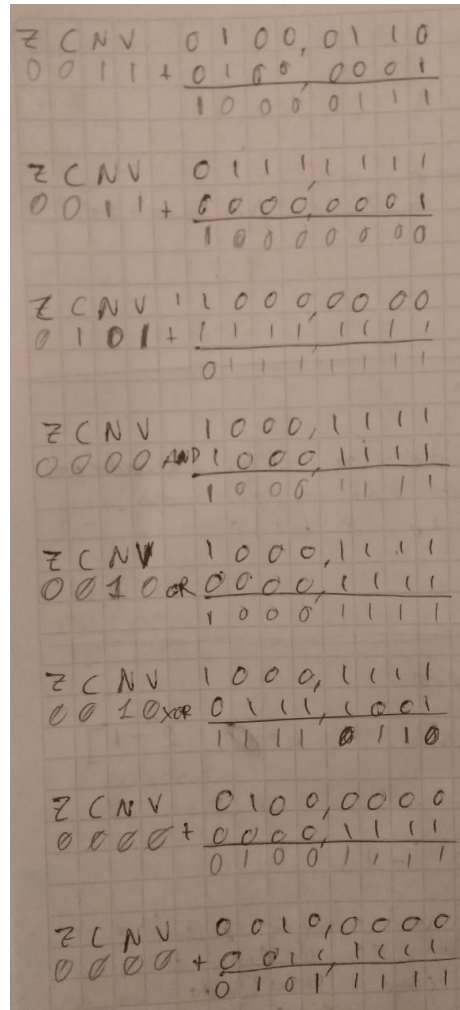 Z C N V 0 1 0 0, 0 1 1 0
0 0 1 1 + 0 1 0 0, 0 0 0 1
1 0 0 0 0 1 1 1
Z C N V 0 1 1 1 1 1 1 1
0 0 1 1 + 0 0 0 0, 0 0 0 1
1 0 0 0 0 0 0 0
Z C N V 1 1 0 0 0, 0 0 0 0
0 1 0 1 + 1 1 1 1, 1 1 1 1
0 1 1 1 1 1 1 1
Z C N V 1 0 0 0, 1 1 1 1
0 0 0 0 AND 1 0 0 0, 1 1 1 1
1 0 0 0 1 1 1 1
Z C N V 1 0 0 0, 1 1 1 1
0 0 1 0 OR 0 0 0 0, 1 1 1 1
1 0 0 0 1 1 1 1
Z C N V 1 0 0 0, 1 1 1 1
0 0 1 0 XOR 0 1 1 1, 1 0 0 1
1 1 1 1 0 1 1 0
Z C N V 0 1 0 0, 0 0 0 0
0 0 0 0 + 0 0 0 0, 1 1 1 1
0 1 0 0 1 1 1 1
Z C N V 0 0 1 0, 0 0 0 0
0 0 0 0 + 0 0 1 1, 1 1 1 1
0 1 0 1 1 1 1 1